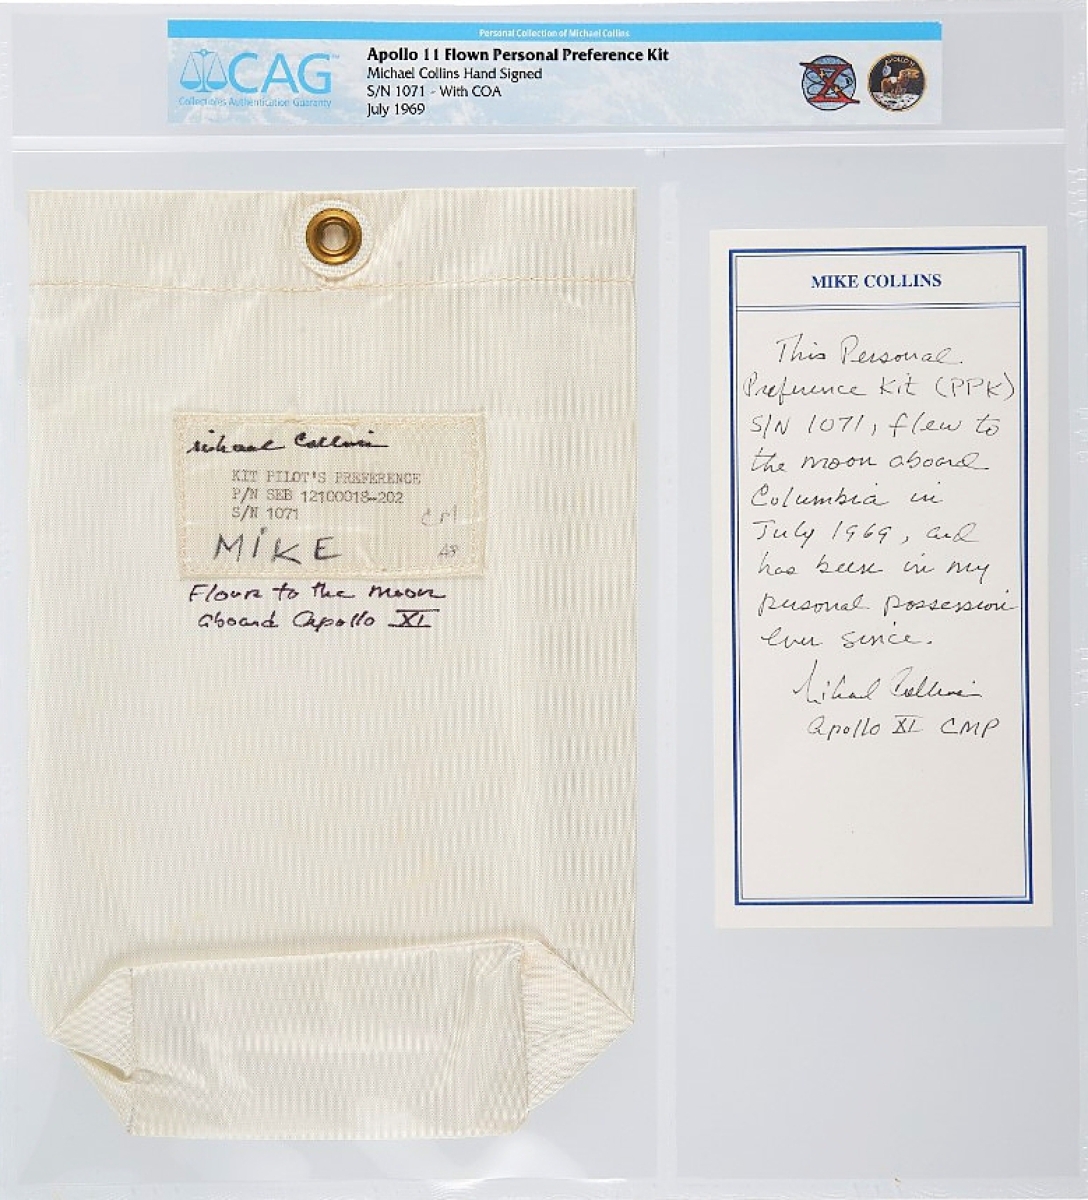 Personal Collection of Michael Collins
CAG
Collectibles Authentication Guaranty
Apollo 11 Flown Personal Preference Kit
Michael Collins Hand Signed
S/N 1071 - With COA
July 1969
APOLLO 11
Michael Collins
KIT PILOT'S PREFERENCE
P/N SEB 12100018-202
S/N 1071
CM
MIKE
A8
Flown to the moon
aboard Apollo XI
MIKE COLLINS
This Personal
Preference Kit (PPK)
S/N 1071, flew to
the moon aboard
Columbia in
July 1969, and
has been in my
personal possession
ever since.
Michael Collins
Apollo XI CMP